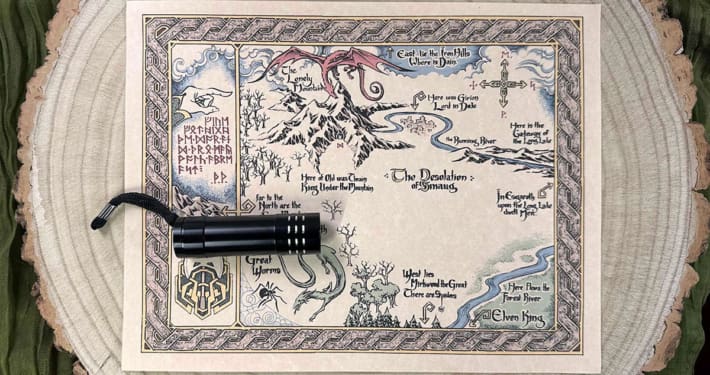 East lie the Iron Hills
Where is Dain
The
Lonely
Mountain
Here was Girion
Lord in Dale
the Running River
Here is the
Gateway of
the Long Lake
Here of Old was Thrain
King Under the Mountain
The Desolation
of Smaug
In Esgaroth
upon the Long Lake
dwell Men
Far to the
North are the
Great
Worms
West lies
Mirkwood the Great
There are Spiders
Here flows the
Forest River
Elven King